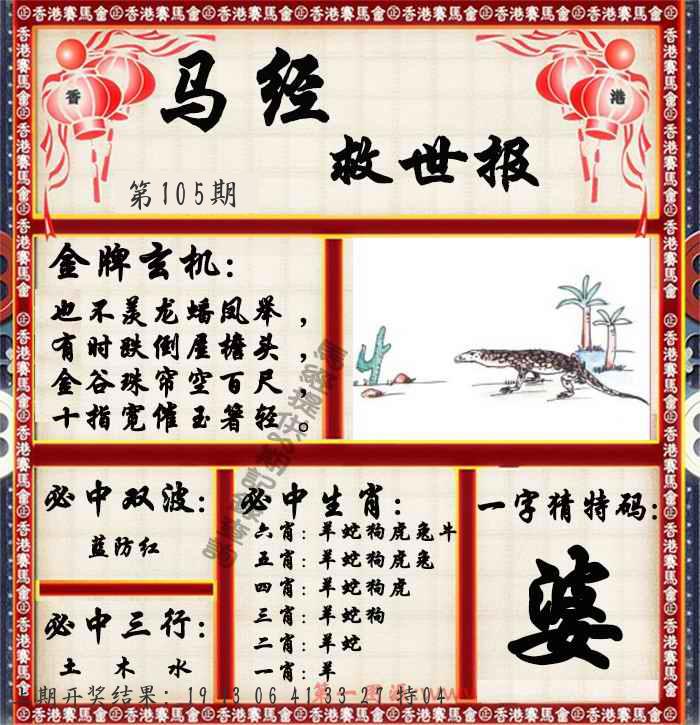 香港賽馬會
香 港
马经
救世报
第105期
金牌玄机：
也不羡龙蟠凤举，
有时跌倒屋檐头，
金谷珠帘空百尺，
十指宽催玉箸轻。
必中双波：
蓝防红
必中三行：
土 木 水
必中生肖：
六肖：羊蛇狗虎兔牛
五肖：羊蛇狗虎兔
四肖：羊蛇狗虎
三肖：羊蛇狗
二肖：羊蛇
一肖：羊
一字猜特码：
婆
期开奖结果：19 3 06 41 33 27 特04